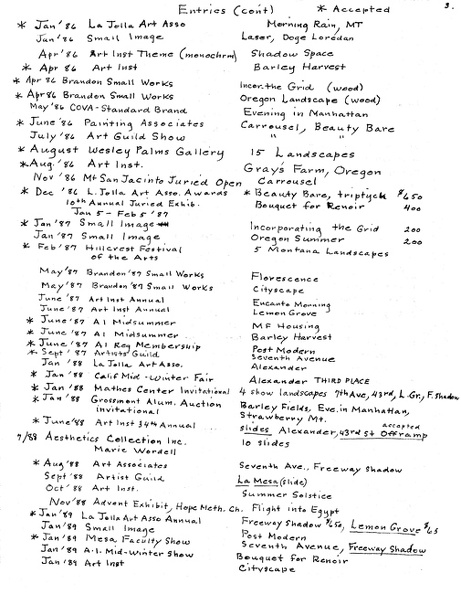 Entries (cont) * Accepted 3.
* Jan '86 La Jolla Art Asso Morning Rain, MT
Jan '86 Small Image Laser, Doge Loredan
Apr '86 Art Inst Theme (monochrm) Shadow Space
* Apr 86 Art Inst Barley Harvest
* Apr 86 Brandon Small Works Incor. the Grid (wood)
* Apr 86 Brandon Small Works Oregon Landscape (wood)
May '86 COVA-Standard Brand Evening in Manhattan
* June '86 Painting Associates Carrousel, Beauty Bare
July '86 Art Guild Show " "
* August Wesley Palms Gallery 15 Landscapes
* Aug '86 Art Inst. Gray's Farm, Oregon
Nov '86 Mt San Jacinto Juried Open Carrousel
* Dec '86 L. Jolla Art Asso. Awards * Beauty Bare, triptyck $650
10th Annual Juried Exhib. Bouquet for Renoir 400
Jan 5 - Feb 5 '87
* Jan '87 Small Image Incorporating the Grid 200
Jan '87 Small Image Oregon Summer 200
* Feb '87 Hillcrest Festival 5 Montana Landscapes
of the Arts
May '87 Brandon '87 Small Works Florescence
May '87 Brandon '87 Small Works Cityscape
June '87 Art Inst Annual Encanto Morning
June '87 Art Inst Annual Lemon Grove
* June '87 AI Midsummer MF Housing
* June '87 AI Midsummer Barley Harvest
* June '87 AI Reg Membership Post Modern
* Sept '87 Artists Guild Seventh Avenue
Jan '88 La Jolla Art Asso. Alexander
* Jan '88 Calif Mid-Winter Fair Alexander THIRD PLACE
* Jan '88 Mathes Center Invitational 4 show landscapes 7th Ave, 43rd, L. Gr, F. Shadow
* Jan '88 Grossmont Alum. Auction Barley Fields, Eve. in Manhattan,
Invitational Strawberry Mt. accepted
* June '88 Art Inst 34th Annual slides Alexander, 43rd St Offramp
7/88 Aesthetics Collection Inc. 10 slides
Marie Wordell
* Aug '88 Art Associates Seventh Ave., Freeway Shadow
Sept '88 Artist Guild La Mesa (slide)
Oct '88 Art Inst. Summer Solstice
Nov '88 Advent Exhibit, Hope Meth. Ch. Flight into Egypt
* Jan '89 La Jolla Art Asso Annual Freeway Shadow $650, Lemon Grove $65
Jan '89 Small Image Post Modern
* Jan '89 Mesa Faculty Show Seventh Avenue, Freeway Shadow
Jan '89 A.I. Mid-Winter Show Bouquet for Renoir
Jan '89 Art Inst Cityscape